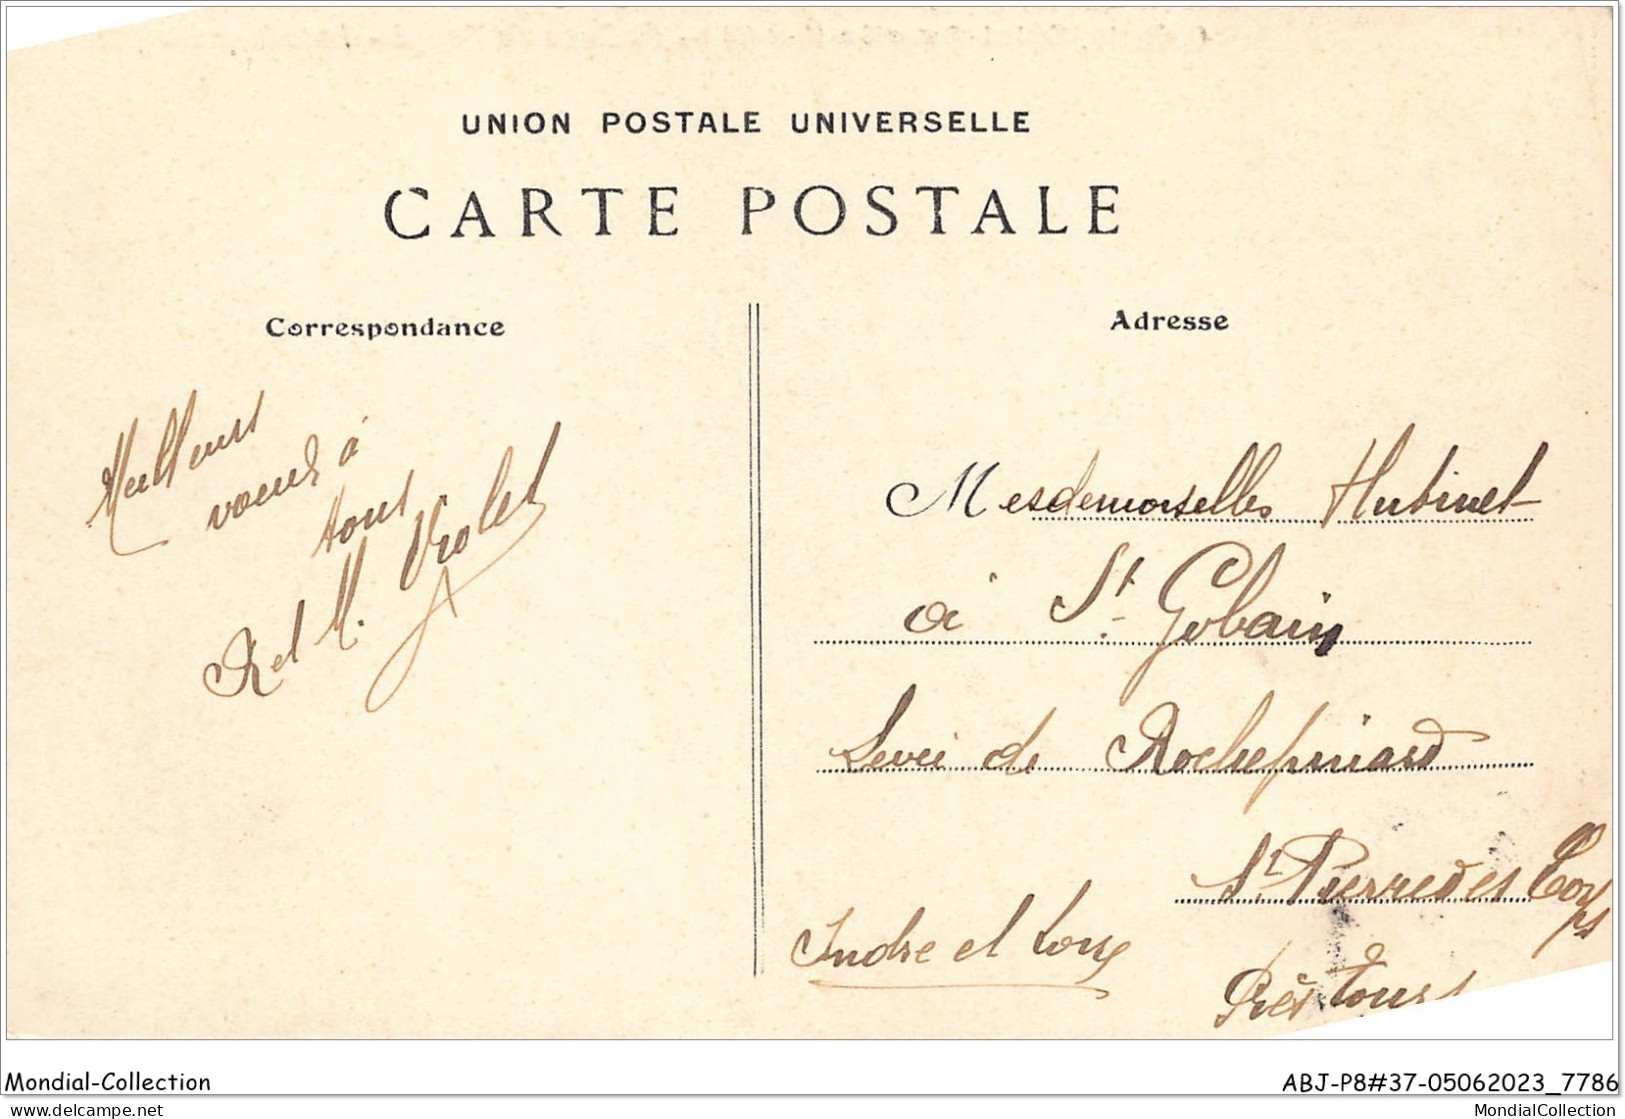 UNION POSTALE UNIVERSELLE
CARTE POSTALE
Correspondance
Meilleurs
voeux à
tous
R et M. Violet
Adresse
Mesdemoiselles Hubinet
à St. Gobain
Levée de Rochepinard
St Pierre des Corps
Indre et Loire
Près Tours
Mondial-Collection
ABJ-P8#37-05062023_7786
delcampe.net
MondialCollection